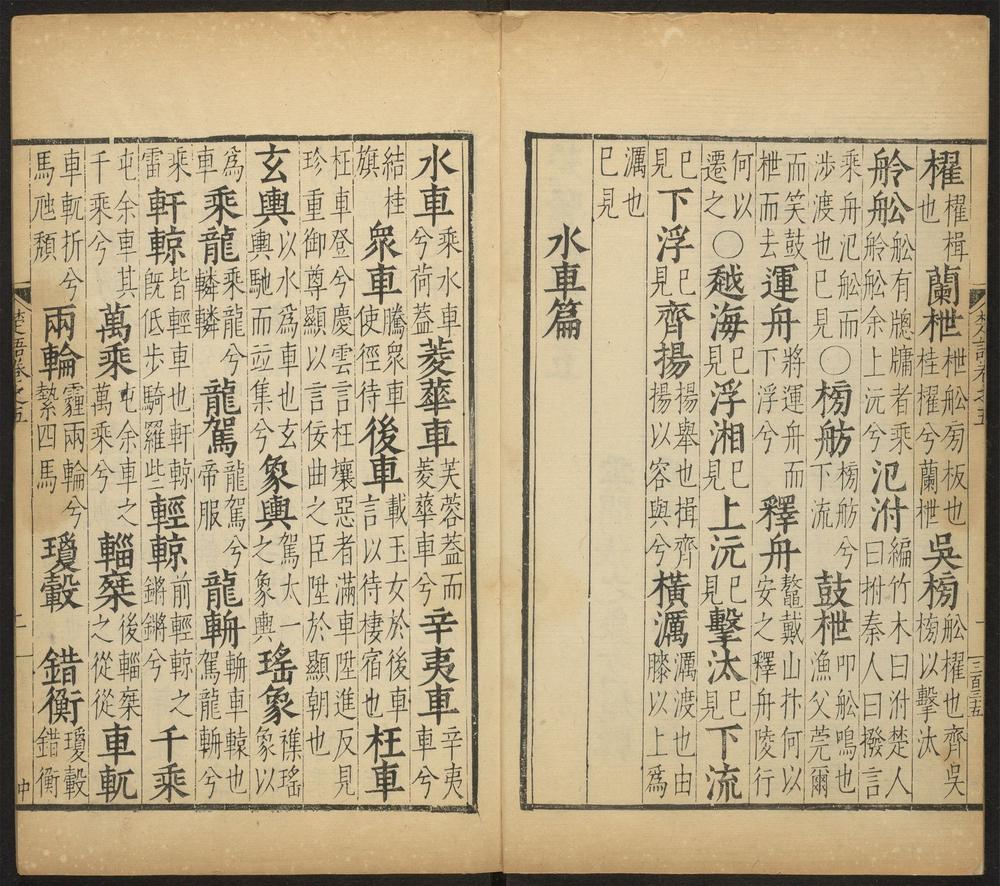 櫂櫂楫也蘭枻枻舩旁板也桂櫂兮蘭枻吳榜舩櫂也齊吳榜以擊汰
舲舩舩有牕牖者乘舲舩余上沅兮氾泭編竹木曰泭楚人曰拊秦人曰撥言
乘舟氾舩而涉渡也巳見〇榜舫榜舫兮下流鼓枻叩舩鳴也漁父莞爾
而笑鼓枻而去運舟將運舟而下浮兮釋舟鼇戴山抃何以安之釋舟陵行
何以遷之〇越海巳見浮湘巳見上沅巳見擊汰巳見下流
巳見下浮巳見齊揚揚舉也楫齊揚以容與兮橫濿濿渡也由膝以上爲
濿也巳見
水車篇
水車乘水車兮荷蓋菱蕐車芙蓉蓋而菱蕐車兮辛夷車辛夷車兮
結桂旗衆車騰衆車使徑待後車載玉女於後車言以待棲宿也枉車
枉車登兮慶雲言枉壤惡者滿車陞進反見珍重御尊顯以言佞曲之臣陞於顯朝也
玄輿以水爲車也玄輿馳而竝集兮象輿駕太一之象輿瑤象襍瑤象以
爲車乘龍乘龍兮轔轔龍駕龍駕兮帝服龍輈輈車轅也駕龍輈兮
乘雷軒輬皆輕車也軒輬既低步騎羅此二輕輬前輕輬之鏘鏘兮千乘
屯余車其千乘兮萬乘屯余車之萬乘兮輜椉後輜椉之從從車軏
車軏折兮馬虺頹兩輪霾兩輪兮縶四馬瓊轂錯衡瓊轂錯衡